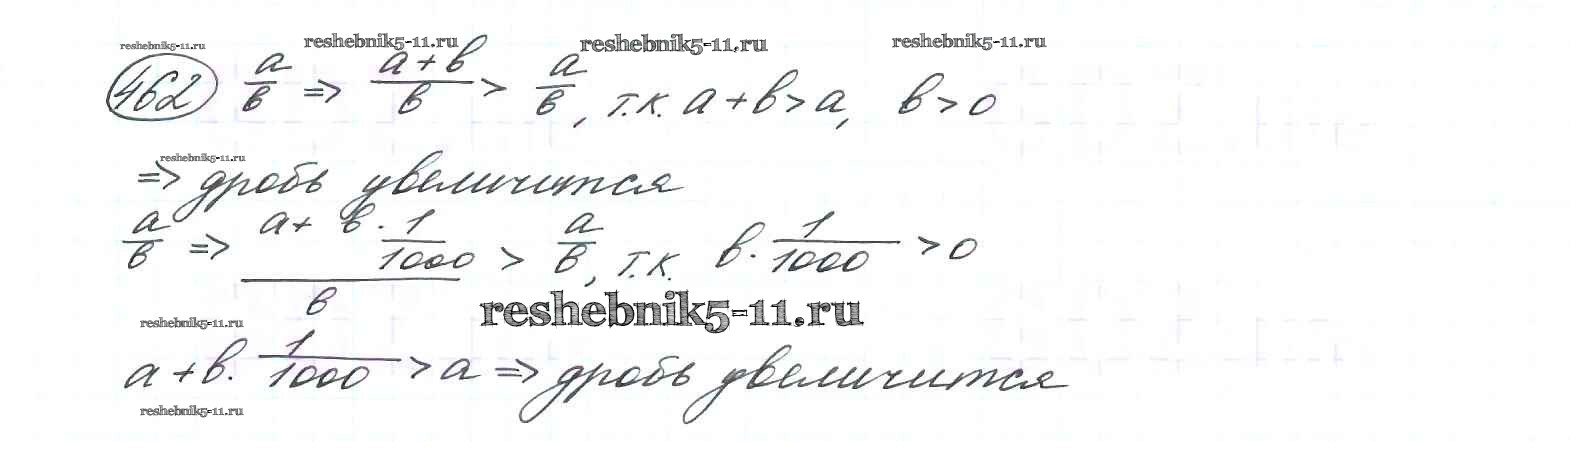 reshebnik5-11.ru reshebnik5-11.ru reshebnik5-11.ru reshebnik5-11.ru
462 a/в => (a+в)/в > a/в, т.к. a+в>a, в>0
reshebnik5-11.ru
=> дробь увеличится
a/в => (a+ в·1/1000)/в > a/в, т.к. в·1/1000 >0
reshebnik5-11.ru
reshebnik5-11.ru
a+в·1/1000 >a => дробь увеличится
reshebnik5-11.ru